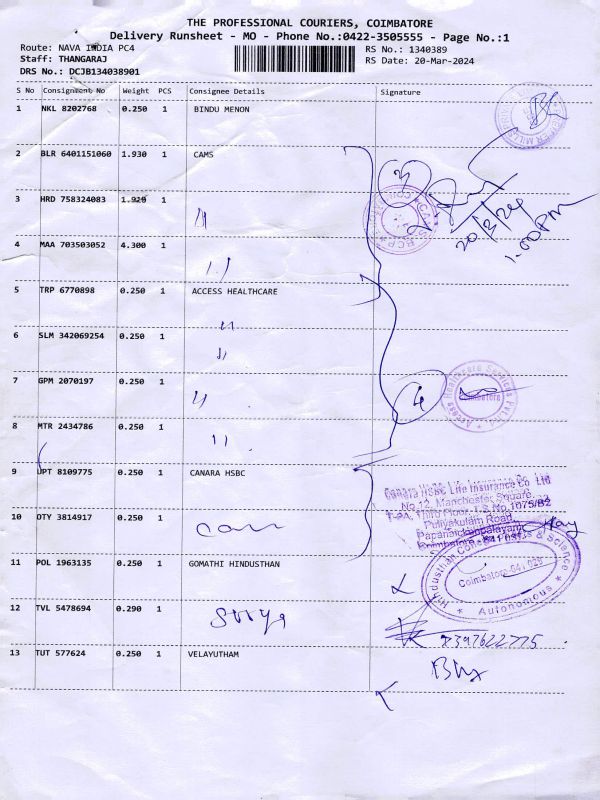 THE PROFESSIONAL COURIERS, COIMBATORE
Delivery Runsheet - MO - Phone No.:0422-3505555 - Page No.:1
Route: NAVA INDIA PC4
RS No.: 1340389
Staff: THANGARAJ
RS Date: 20-Mar-2024
DRS No.: DCJB134038901
S No Consignment No Weight PCS Consignee Details Signature
1 NKL 8202768 0.250 1 BINDU MENON
2 BLR 6401151060 1.930 1 CAMS
3 HRD 758324083 1.920 1 "
3
20/3/24
1.00 PM
4 MAA 703503052 4.300 1 "
5 TRP 6770898 0.250 1 ACCESS HEALTHCARE
"
6 SLM 342069254 0.250 1 "
7 GPM 2070197 0.250 1 "
4
Access Healthcare Services Pvt
Coimbatore
8 MTR 2434786 0.250 1 "
9 UPT 8109775 0.250 1 CANARA HSBC
Canara HSBC Life Insurance Co Ltd
No 12, Manchester Square,
Third Floor, T.S No.1075/B2
Puliyakulam Road,
Papanaickenpalayam
Coimbatore
10 OTY 3814917 0.250 1
11 POL 1963135 0.250 1 GOMATHI HINDUSTHAN
Hindusthan College Arts & Science
Coimbatore-641 028
* Autonomous *
12 TVL 5478694 0.290 1 Surya
13 TUT 577624 0.250 1 VELAYUTHAM